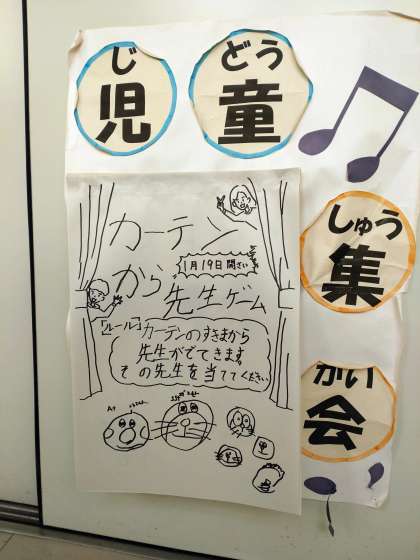 じ どう
児 童
しゅう
集
かい
会
カーテン
から 先生ゲーム
1月19日開さい
[ルール]カーテンのすきまから
先生がでてきます。
その先生を当ててください